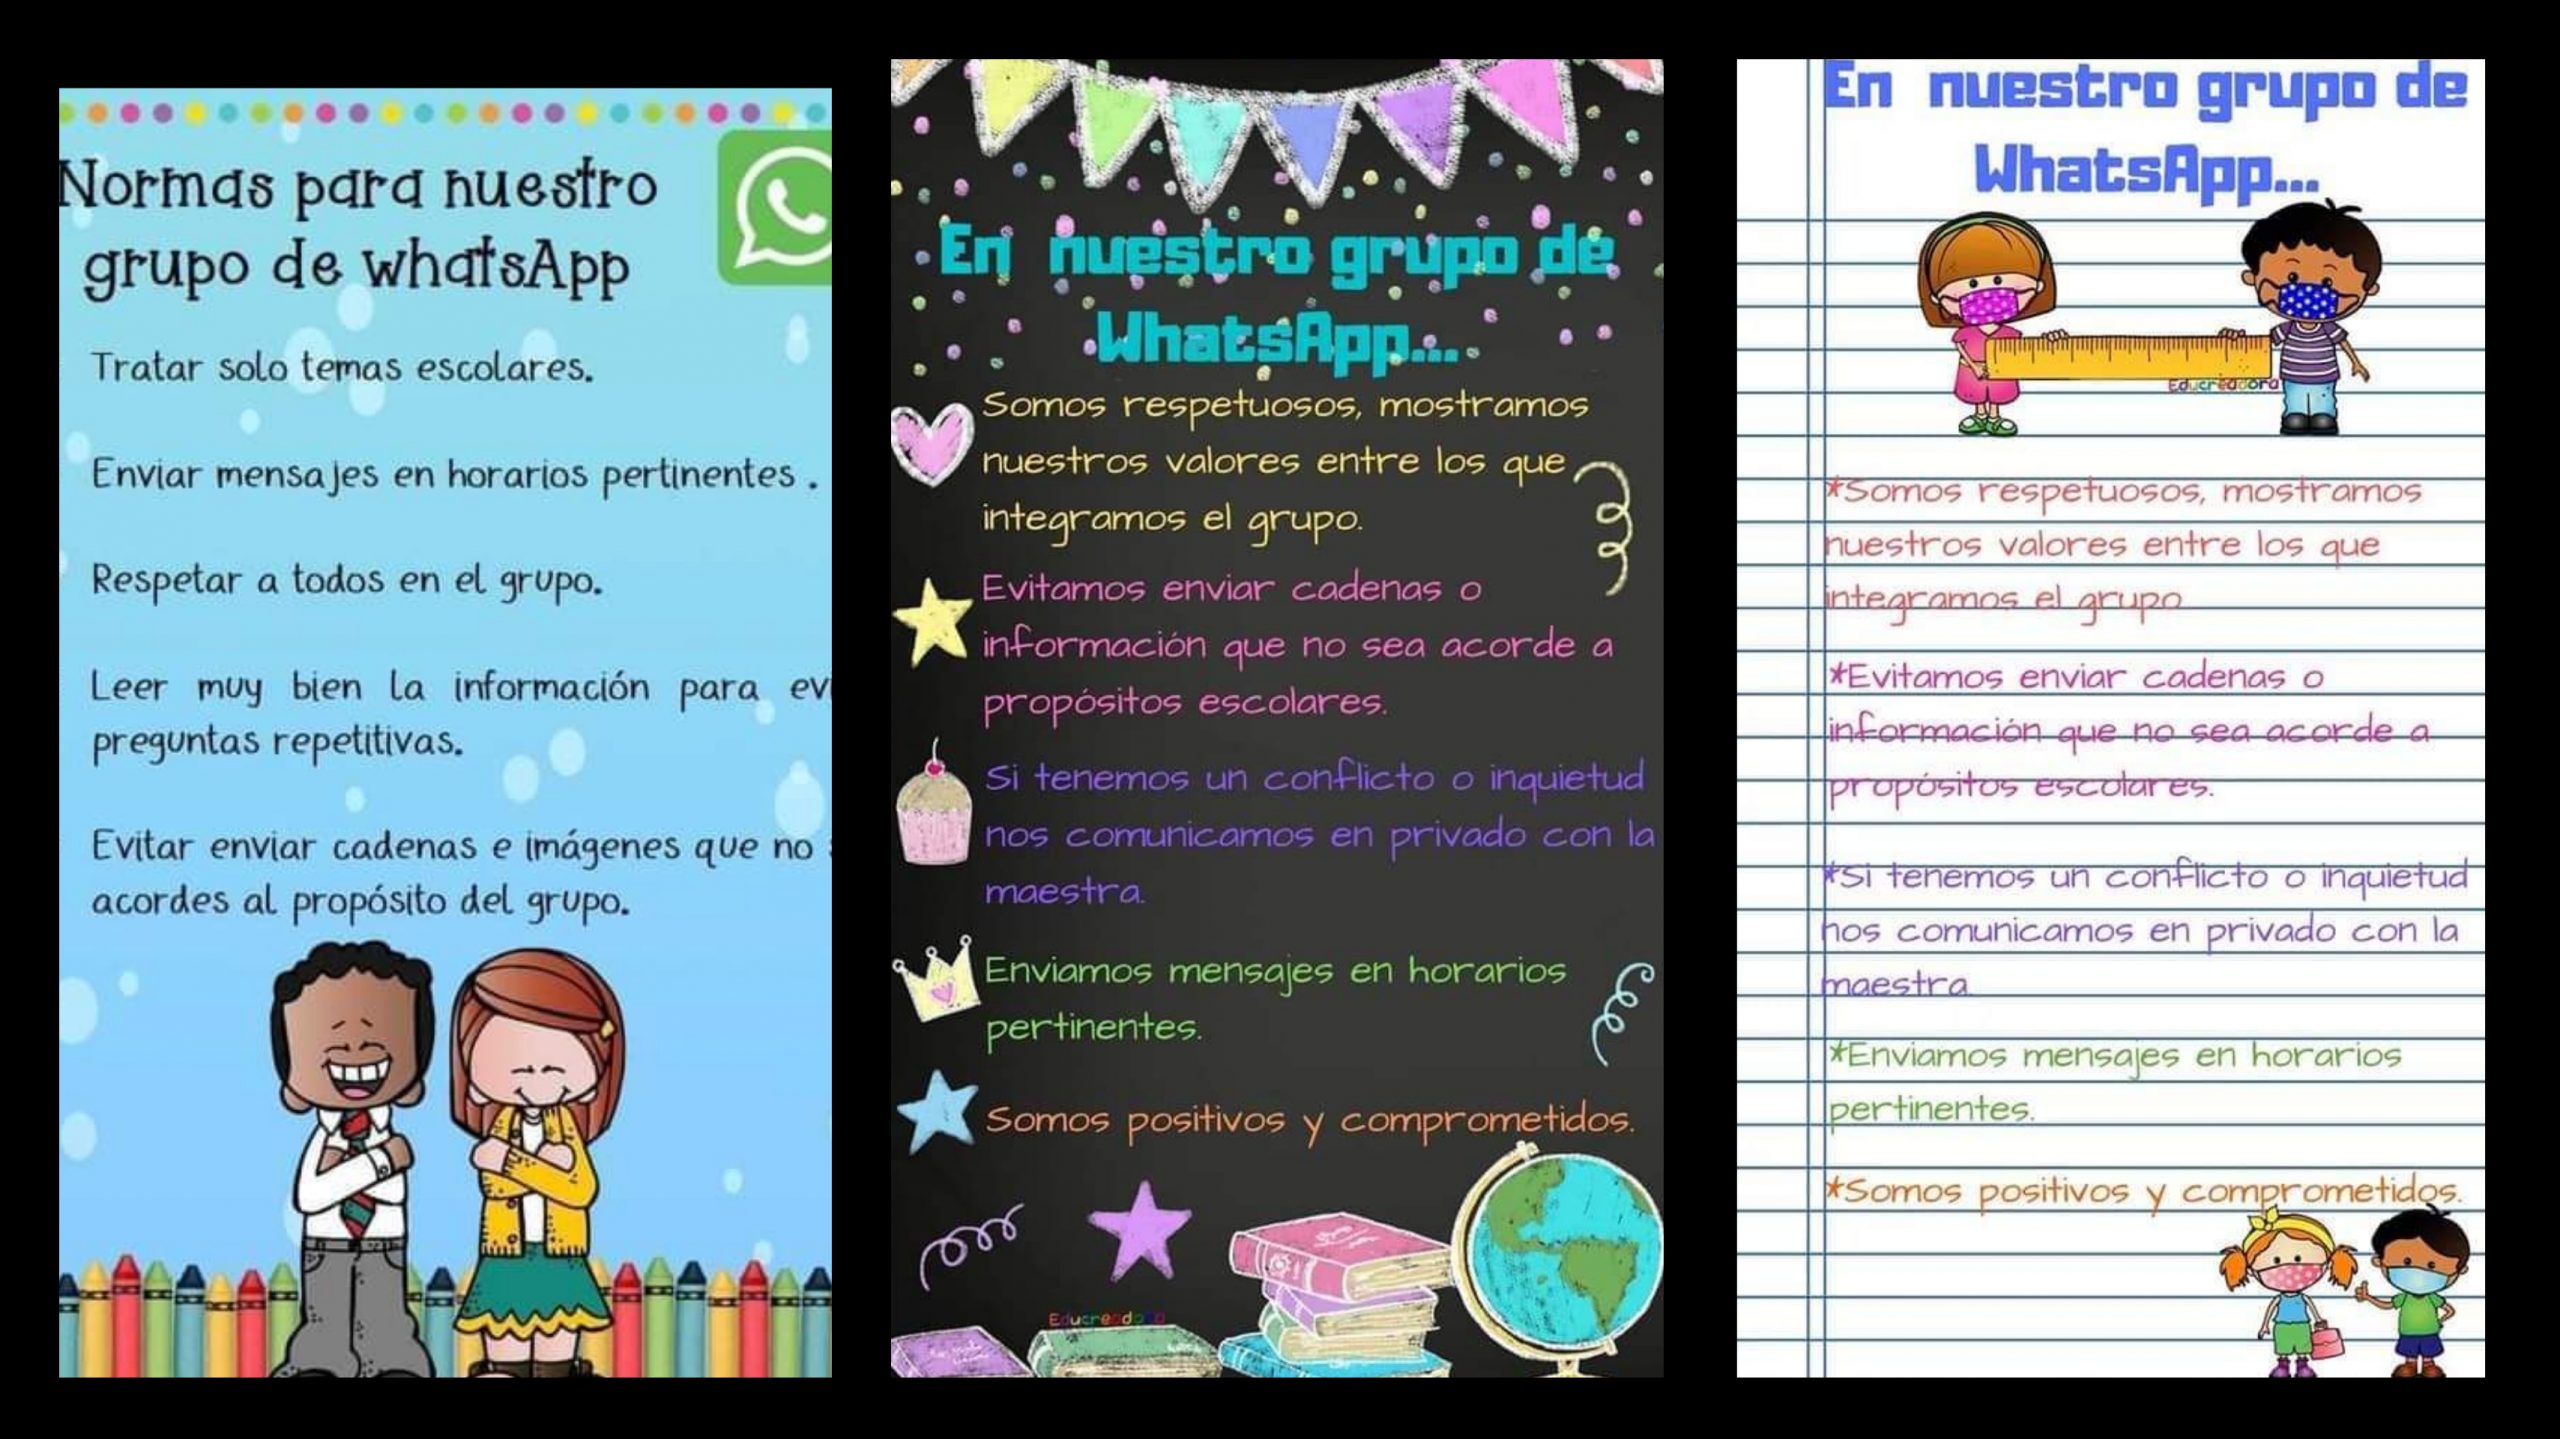 Normas para nuestro
grupo de whatsApp
Tratar solo temas escolares.
Enviar mensajes en horarios pertinentes .
Respetar a todos en el grupo.
Leer muy bien la información para
preguntas repetitivas.
Evitar enviar cadenas e imágenes que no
acordes al propósito del grupo.
En nuestro grupo de
WhatsApp...
Somos respetuosos, mostramos
nuestros valores entre los que
integramos el grupo.
Evitamos enviar cadenas o
información que no sea acorde a
propósitos escolares.
Si tenemos un conflicto o inquietud
nos comunicamos en privado con la
maestra.
Enviamos mensajes en horarios
pertinentes.
Somos positivos y comprometidos.
Educreadora
En nuestro grupo de
WhatsApp...
Educreadora
*Somos respetuosos, mostramos
nuestros valores entre los que
integramos el grupo
*Evitamos enviar cadenas o
información que no sea acorde a
propósitos escolares.
*Si tenemos un conflicto o inquietud
nos comunicamos en privado con la
maestra
*Enviamos mensajes en horarios
pertinentes.
*Somos positivos y comprometidos.